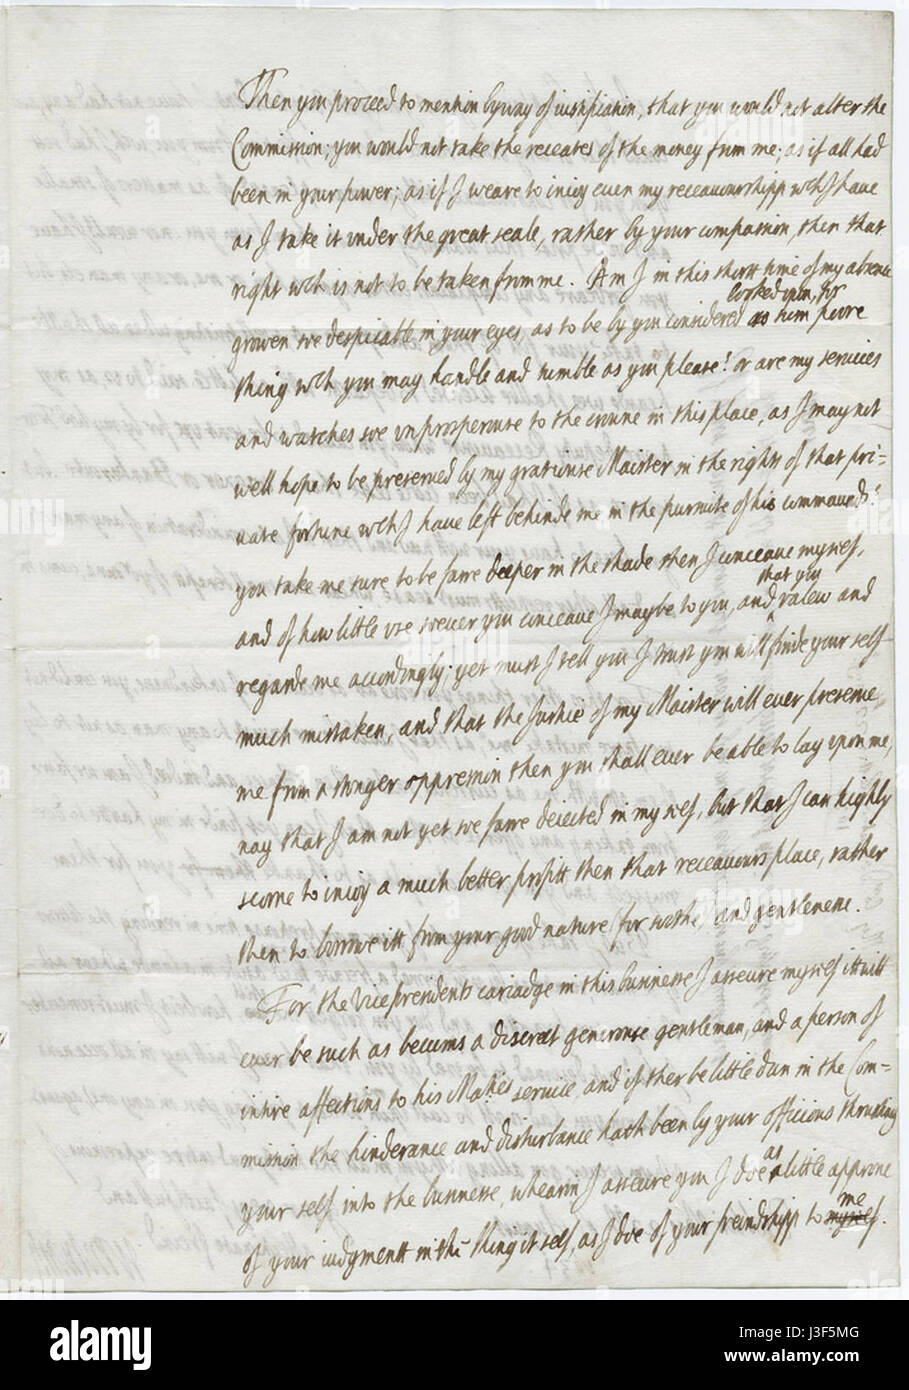 Then you proceed to mention by way of iustification, that you would not alter the
Commission; you would not take the receates of the money from me; as if all had
been in your power; as if I weare to inioy euen my receauourshipp wch I haue
as I take it under the great seale, rather by your compassion, then that
right wch is not to be taken from me. Am I in this short time of my absence
looked upon, or
growen soe despicable in your eyes, as to be by you considered as sum poore
thing wch you may handle and tumble as you please! or are my seruices
and watches soe unprosperouse to the crowne in this place, as I may not
well hope to be preserued by my gratiouse Maister in the rights of that pri=
uate fortune wch I haue left behinde me in the pursuite of his commaunds?
you take me sure to be farre deeper in the shade then I conceaue myself,
that you
and of how little use soeuer you conceaue I may be to you, and ualew and
regarde me accordingly; yet must I tell you I trust you will finde your self
much mistaken, and that the Justice of my Maister will euer preserue
me from a stronger oppression then you shall euer be able to lay upon me,
nay that I am not yet soe farre deiected in my self, but that I can highly
scorne to inioy a much better profitt then that receauours place, rather
then to borrowe itt from your good nature (for soothe) and gentlenesse.
For the Vice presidents cariadge in this businesse I asseure myself itt will
euer be such as becums a discreet generouse gentleman, and a person of
intire affections to his Maties seruice, and if ther be little dun in the Com=
mission the hinderance and disturbance hath been by your officious thrusting
as
your self into the businesse, whearin I asseure you I doe little approue
me
of your iudgment in the thing it self, as I doe of your freindshipp to myself.
alamy
J3F5MG
www.alamy.com